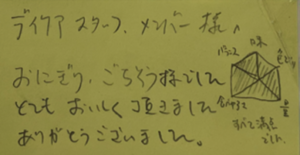 デイケア スタッフ、メンバー 様へ
おにぎり、ごちそう様でした
とても おいしく 頂きました
ありがとうございました。
味
量
すべて満点
でした。